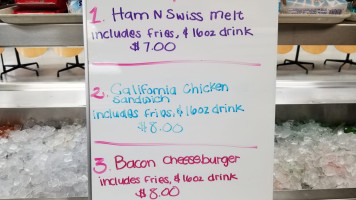 1. Ham N Swiss melt
includes fries, & 16oz drink
$7.00
2. California Chicken
Sandwich
includes fries, & 16oz drink
$8.00
3. Bacon Cheeseburger
includes fries, & 16oz drink
$8.00